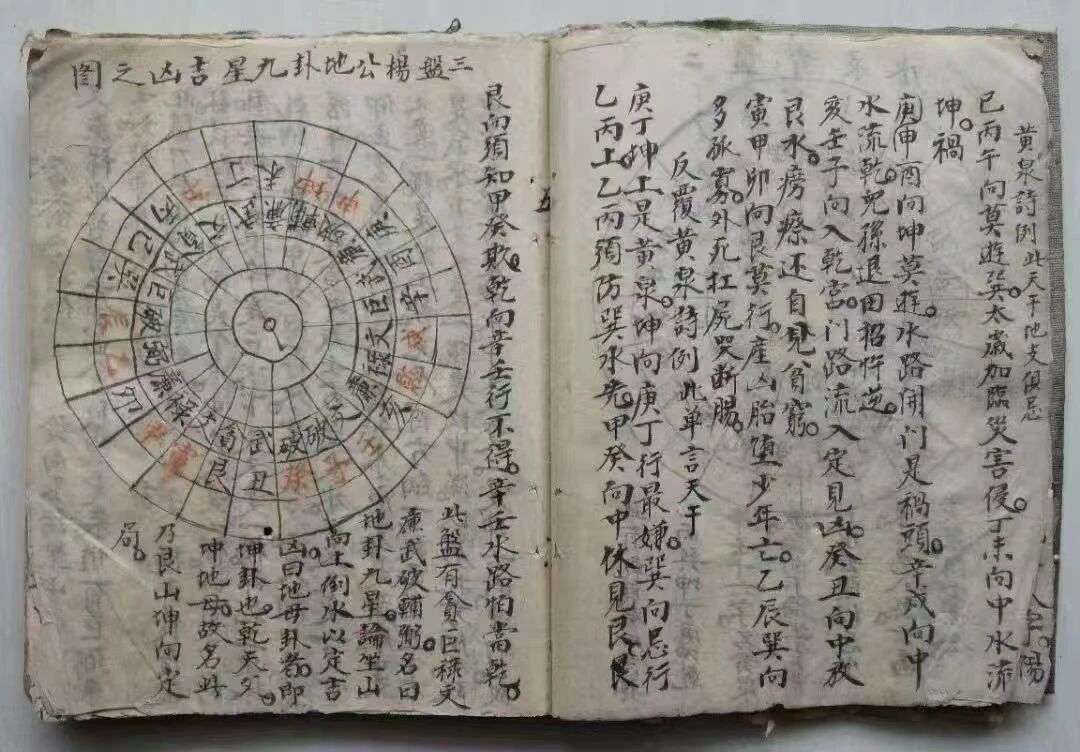 黄泉詩例此天干地支俱忌
巳丙午向莫遊巽。太歲加臨災害侵。丁未向中水流
坤。禍
庚申酉向坤莫遊水路開门是禍頭。辛戌向中
水流乾。兒孫退田招忤逆。
亥壬子向入乾宫。门路流入定見凶。癸丑向中孜
艮水。癆瘵还自見貧窮。
寅甲卯向艮莫行。產凶胎堕少年亡。乙辰巽向
多孤寡。外死扛屍哭断腸。
反覆黄泉詩例此单言天干
庚丁坤上是黄泉。坤向庚丁行最嫌。巽向忌行
乙丙上。乙丙須防巽水先。甲癸向中休見艮。艮
五
艮向須知甲癸欺。乾向辛壬行不得。辛壬水路怕當乾。
三盤楊公地卦九星吉凶之图
丁
未
坤
庚
酉
辛
亥
壬
子
癸
丑
艮
寅
甲
卯
乙
巽
巳
丙
武
破
廉
禄
文
巨
貪
此盤有貪巨禄文
廉武破輔弼。名曰
地卦九星。論坐山
向上倒水以定吉
凶。曰地母卦者。即
坤卦也。乾天父
坤地母。故名此
乃艮山坤向定
局。